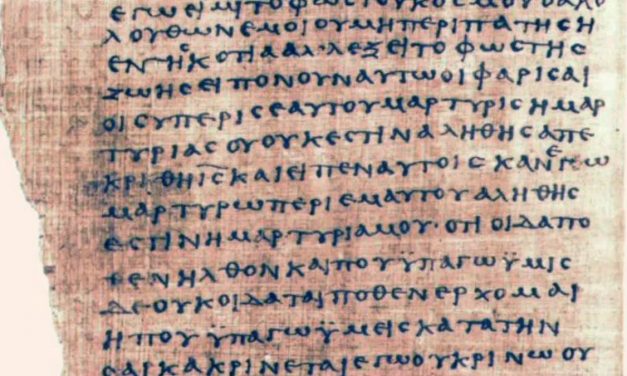 ΕΓΩΕΙΜΙΤΟΦΩϹΤΟΥΚΟϹΜΟΥΟΑΚΟ
ΛΟΥΘΩΝΕΜΟΙΟΥΜΗΠΕΡΙΠΑΤΗϹΗ
ΕΝΤΗϹΚΟΤΙΑΑΛ·ΛΕΞΕΙΤΟΦΩϹΤΗϹ
ΖΩΗϹΕΙΠΟΝΟΥΝΑΥΤΩΟΙΦΑΡΙϹΑΙ
ΟΙϹΥΠΕΡΙϹΕΑΥΤΟΥΜΑΡΤΥΡΙϹΗΜΑΡ
ΤΥΡΙΑϹΟΥΟΥΚΕϹΤΙΝΑΛΗΘΗϹΑΠΕ
ΚΡΙΘΗΙ̅Ϲ̅ΚΑΙΕΙΠΕΝΑΥΤΟΙϹΚΑΝΕΓΩ
ΜΑΡΤΥΡΩΠΕΡΙΕΜΑΥΤΟΥΑΛΗΘΗϹ
ΕϹΤΙΝΗΜΑΡΤΥΡΙΑΜΟΥ·ΟΤΙΟΙΔΑΠΟ
ΘΕΝΗΛΘΟΝΚΑΙΠΟΥΫΠΑΓΩΫΜΙϹ
ΔΕΟΥΚΟΙΔΑΤΑΙΠΟΘΕΝΕΡΧΟΜΑΙ
ΗΠΟΥΫΠΑΓΩΫΜΕΙϹΚΑΤΑΤΗΝ
ϹΑΡΚΑΚΡΙΝΕΤΑΙΕΓΩΟΥΚΡΙΝΩΟΥ